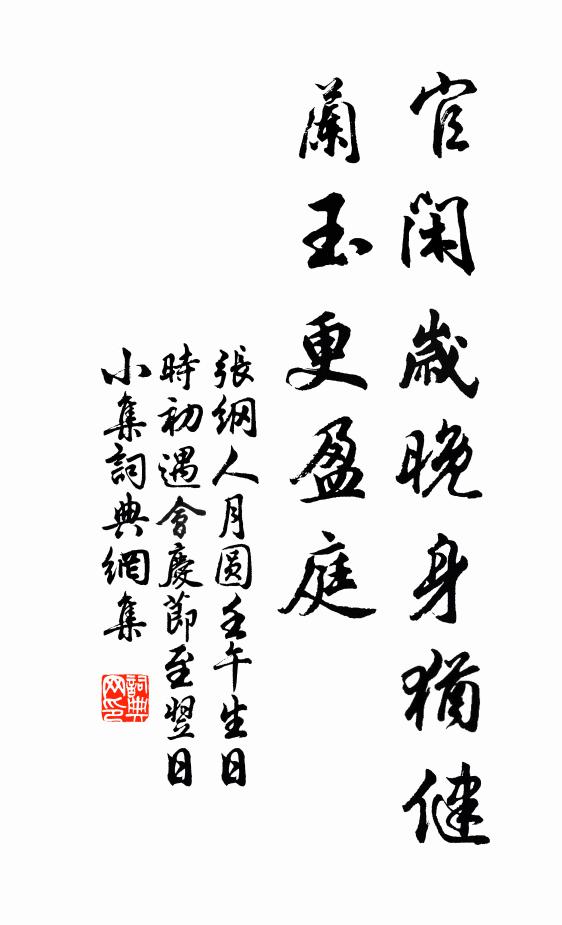 官閑歲晚身猶健
蘭玉更盈庭
張綱人月圆壬午生日
時初遇會慶節至翌日
小集詞典網集
詞典
网印